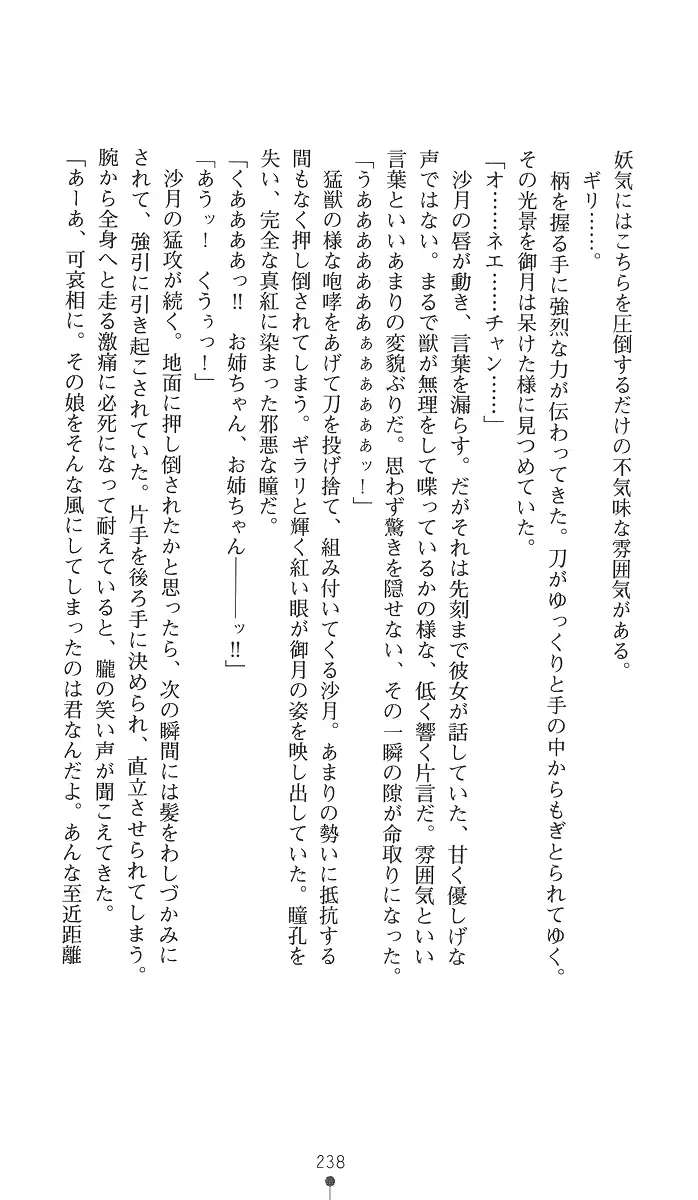 妖気にはこちらを圧倒するだけの不気味な雰囲気がある。
ギリ……。
柄を握る手に強烈な力が伝わってきた。刀がゆっくりと手の中からもぎとられてゆく。
その光景を御月は呆けた様に見つめていた。
「オ……ネエ……チャン……」
沙月の唇が動き、言葉を漏らす。だがそれは先刻まで彼女が話していた、甘く優しげな
声ではない。まるで獣が無理をして喋っているかの様な、低く響く片言だ。雰囲気といい
言葉といいあまりの変貌ぶりだ。思わず驚きを隠せない、その一瞬の隙が命取りになった。
「うあああああああぁぁぁぁぁッ！」
猛獣の様な咆哮をあげて刀を投げ捨て、組み付いてくる沙月。あまりの勢いに抵抗する
間もなく押し倒されてしまう。ギラリと輝く紅い眼が御月の姿を映し出していた。瞳孔を
失い、完全な真紅に染まった邪悪な瞳だ。
「くああああっ‼　お姉ちゃん、お姉ちゃん―――ッ‼」
「あうッ！　くうぅっ！」
沙月の猛攻が続く。地面に押し倒されたかと思ったら、次の瞬間には髪をわしづかみに
されて、強引に引き起こされていた。片手を後ろ手に決められ、直立させられてしまう。
腕から全身へと走る激痛に必死になって耐えていると、朧の笑い声が聞こえてきた。
「あーあ、可哀相に。その娘をそんな風にしてしまったのは君なんだよ。あんな至近距離
238